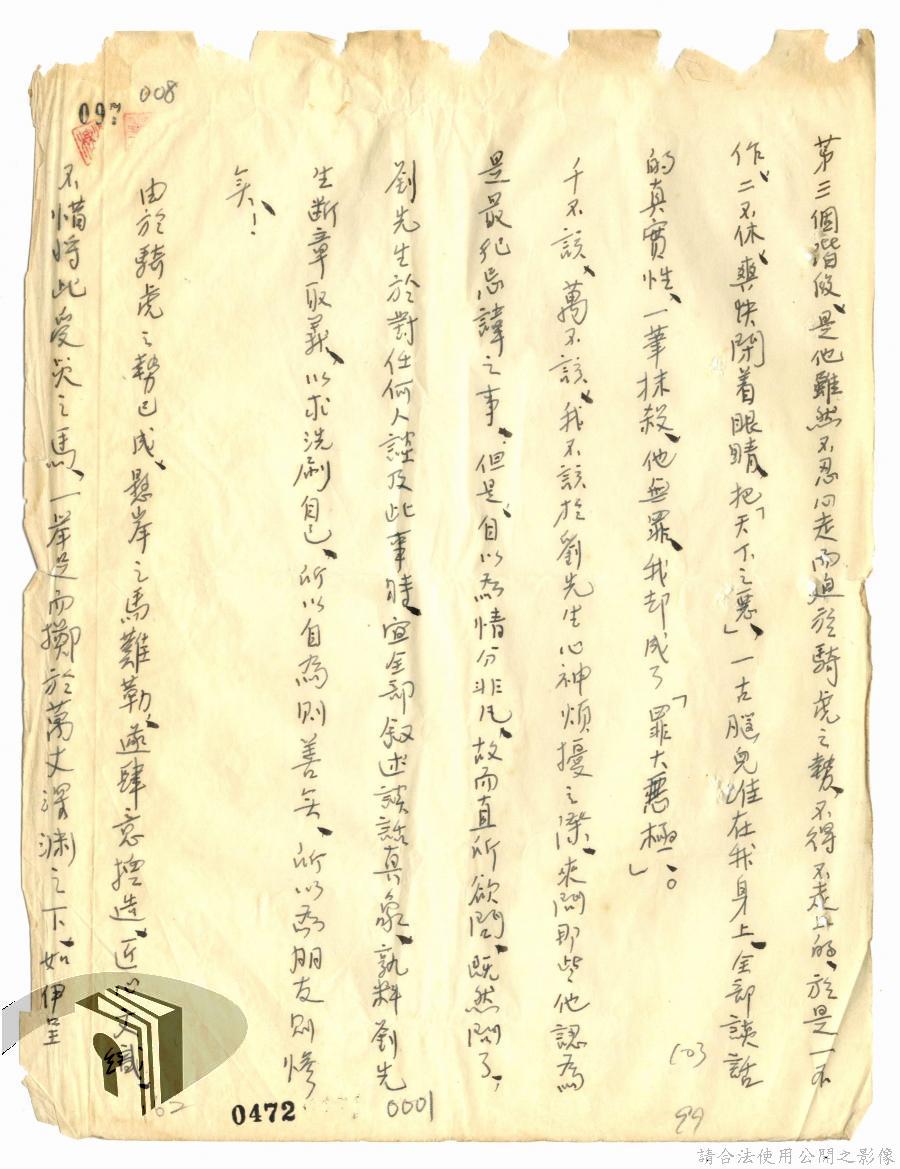 第三個階段、是他雖然不忍心走而迫於騎虎之勢、不得不走上的、於是一不
作、二不休、爽快閉着眼睛、把「天下之惡」、一古腦兒堆在我身上、全部談話
的真實性、一筆抹殺、他無罪、我却成了「罪大惡極」。
千不該、萬不該、我不該於劉先生心神煩擾之際、來問那些他認為
是最犯忌諱之事、但是、自以為情分非凡、故而直所欲問、既然問了，
劉先生於對任何人談及此事時、宜全部叙述談話真象、孰料劉先
生斷章取義、以求洗刷自己、所以自為則善矣、所以為朋友則慘
矣、！
由於騎虎之勢已成、懸岸之馬難勒、遂肆意揑造、匠心文織、
不惜將此受災之馬、一舉足而擲於萬丈深淵之下、如伊呈
008
09
103
99
0001
0472
02
請合法使用公開之影像